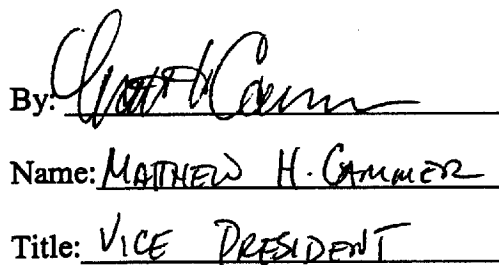 By:
Name: MATTHEW H. CAMMER
Title: VICE PRESIDENT